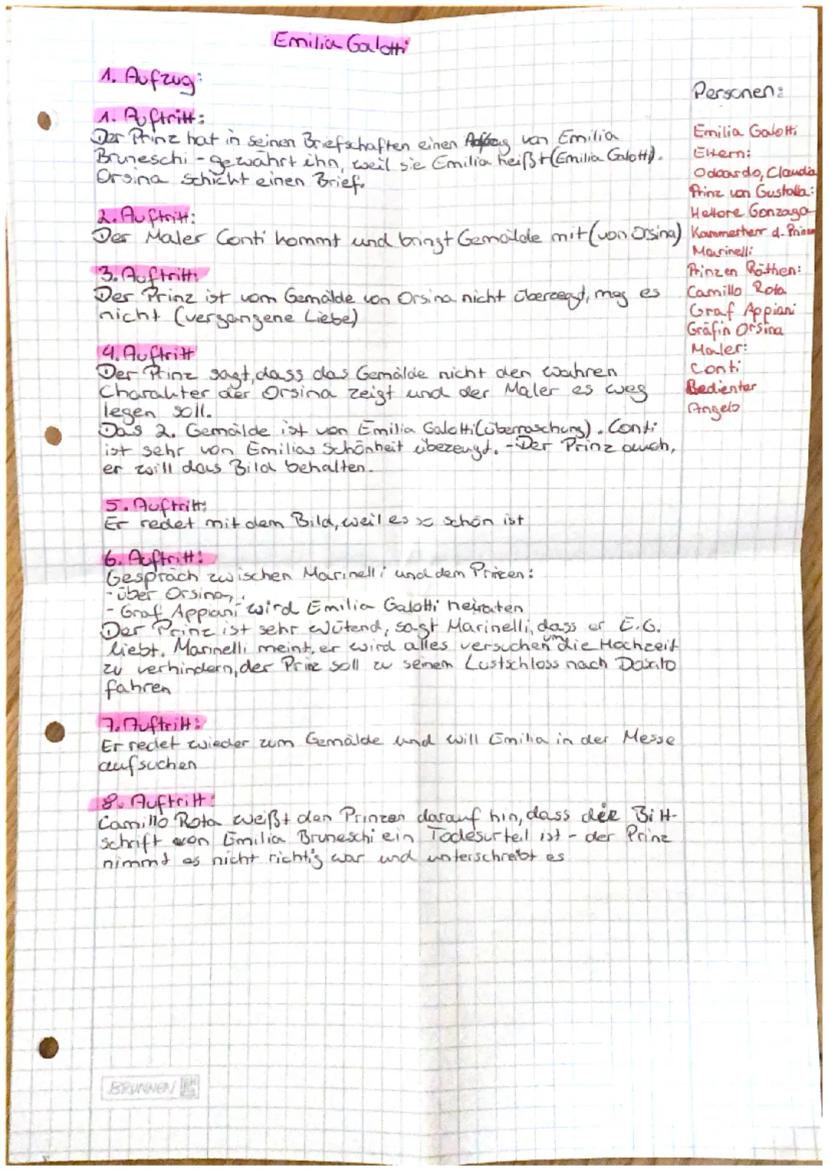 Emilia Galotti
1. Aufzug:
1. Auftritt:
Der Prinz hat in seinen Briefschaften einen von Emilia
Bruneschi - gewährt ihn, weil sie Emilia heißt (Emilia Galotti).
Orsina schickt einen Brief.
2. Auftritt:
Der Maler Conti kommt und bringt Gemälde mit (von Orsina)
3. Auftritt:
Der Prinz ist vom Gemälde von Orsina nicht überzeugt, mag es
nicht (vergangene Liebe)
4. Auftritt
Der Prinz sagt, dass das Gemälde nicht den wahren
Charakter der Orsina zeigt und der Maler es weg
legen soll.
Das 2. Gemälde ist von Emilia Galotti (Überraschung). Conti
ist sehr von Emilias Schönheit überzeugt. - Der Prinz auch,
er will das Bild behalten.
5. Auftritt:
Er redet mit dem Bild, weil es so schön ist
6. Auftritt:
Gespräch zwischen Marinelli und dem Prinzen:
- über Orsina,
- Graf Appiani wird Emilia Galotti heiraten
Der Prinz ist sehr wütend, sagt Marinelli, dass er E.G.
liebt. Marinelli meint, er wird alles versuchen um die Hochzeit
zu verhindern, der Prinz soll zu seinem Lustschloss nach Dosalo
fahren
7. Auftritt:
Er redet wieder zum Gemälde und will Emilia in der Messe
aufsuchen
8. Auftritt:
Camillo Rota weißt den Prinzen darauf hin, dass die Bitt-
schrift von Emilia Bruneschi ein Todesurteil ist - der Prinz
nimmt es nicht richtig war und unterschreibt es
Personen:
Emilia Galotti
Eltern:
Odoardo, Claudia
Prinz von Gustalla:
Hettore Gonzaga
Kammerherr d. Prinzen
Marinelli
Prinzen Räthen:
Camillo Rota
Graf Appiani
Gräfin Orsina
Maler:
Conti
Bedienter
Angelo
BRUNNEN